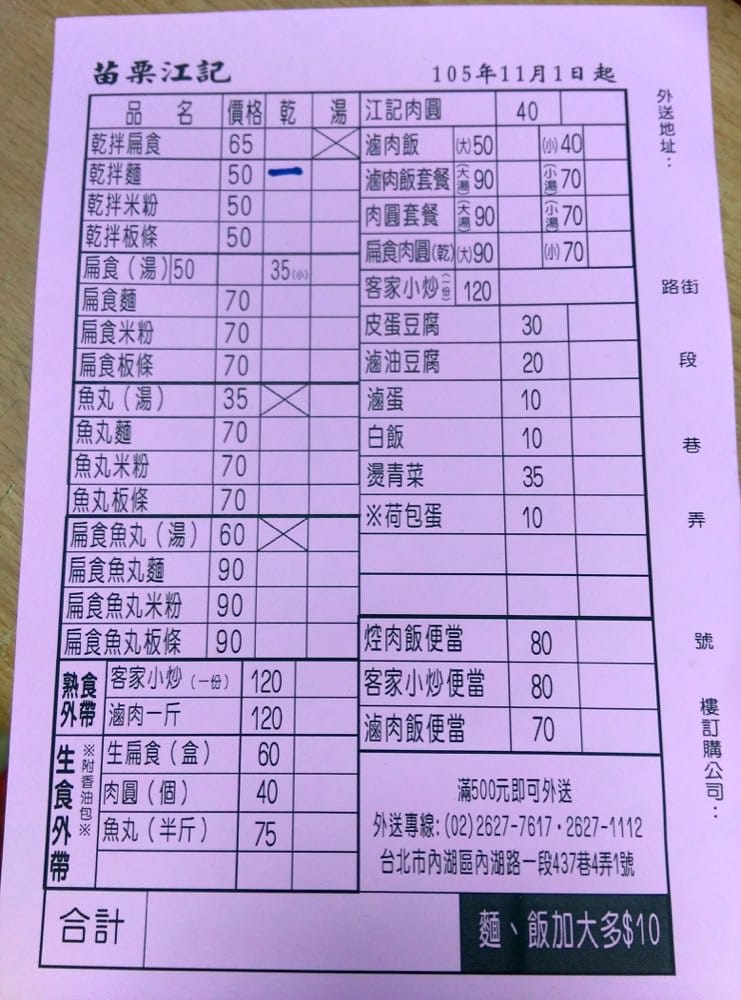 苗栗江記
105年11月1日起
品名 價格 乾 湯
乾拌扁食 65
乾拌麵 50
乾拌米粉 50
乾拌板條 50
扁食(湯) 50 35(小)
扁食麵 70
扁食米粉 70
扁食板條 70
魚丸(湯) 35
魚丸麵 70
魚丸米粉 70
魚丸板條 70
扁食魚丸(湯) 60
扁食魚丸麵 90
扁食魚丸米粉 90
扁食魚丸板條 90
熟食外帶
客家小炒(一份) 120
滷肉一斤 120
生食外帶
※附香油包※
生扁食(盒) 60
肉圓(個) 40
魚丸(半斤) 75
江記肉圓 40
滷肉飯 (大)50 (小)40
滷肉飯套餐 (大湯)90 (小湯)70
肉圓套餐 (大湯)90 (小湯)70
扁食肉圓(乾) (大)90 (小)70
客家小炒(一份) 120
皮蛋豆腐 30
滷油豆腐 20
滷蛋 10
白飯 10
燙青菜 35
※荷包蛋 10
焢肉飯便當 80
客家小炒便當 80
滷肉飯便當 70
滿500元即可外送
外送專線:(02)2627-7617·2627-1112
台北市內湖區內湖路一段437巷4弄1號
合計
麵、飯加大多$10
外送地址:
路街
段
巷
弄
號
樓訂購公司: